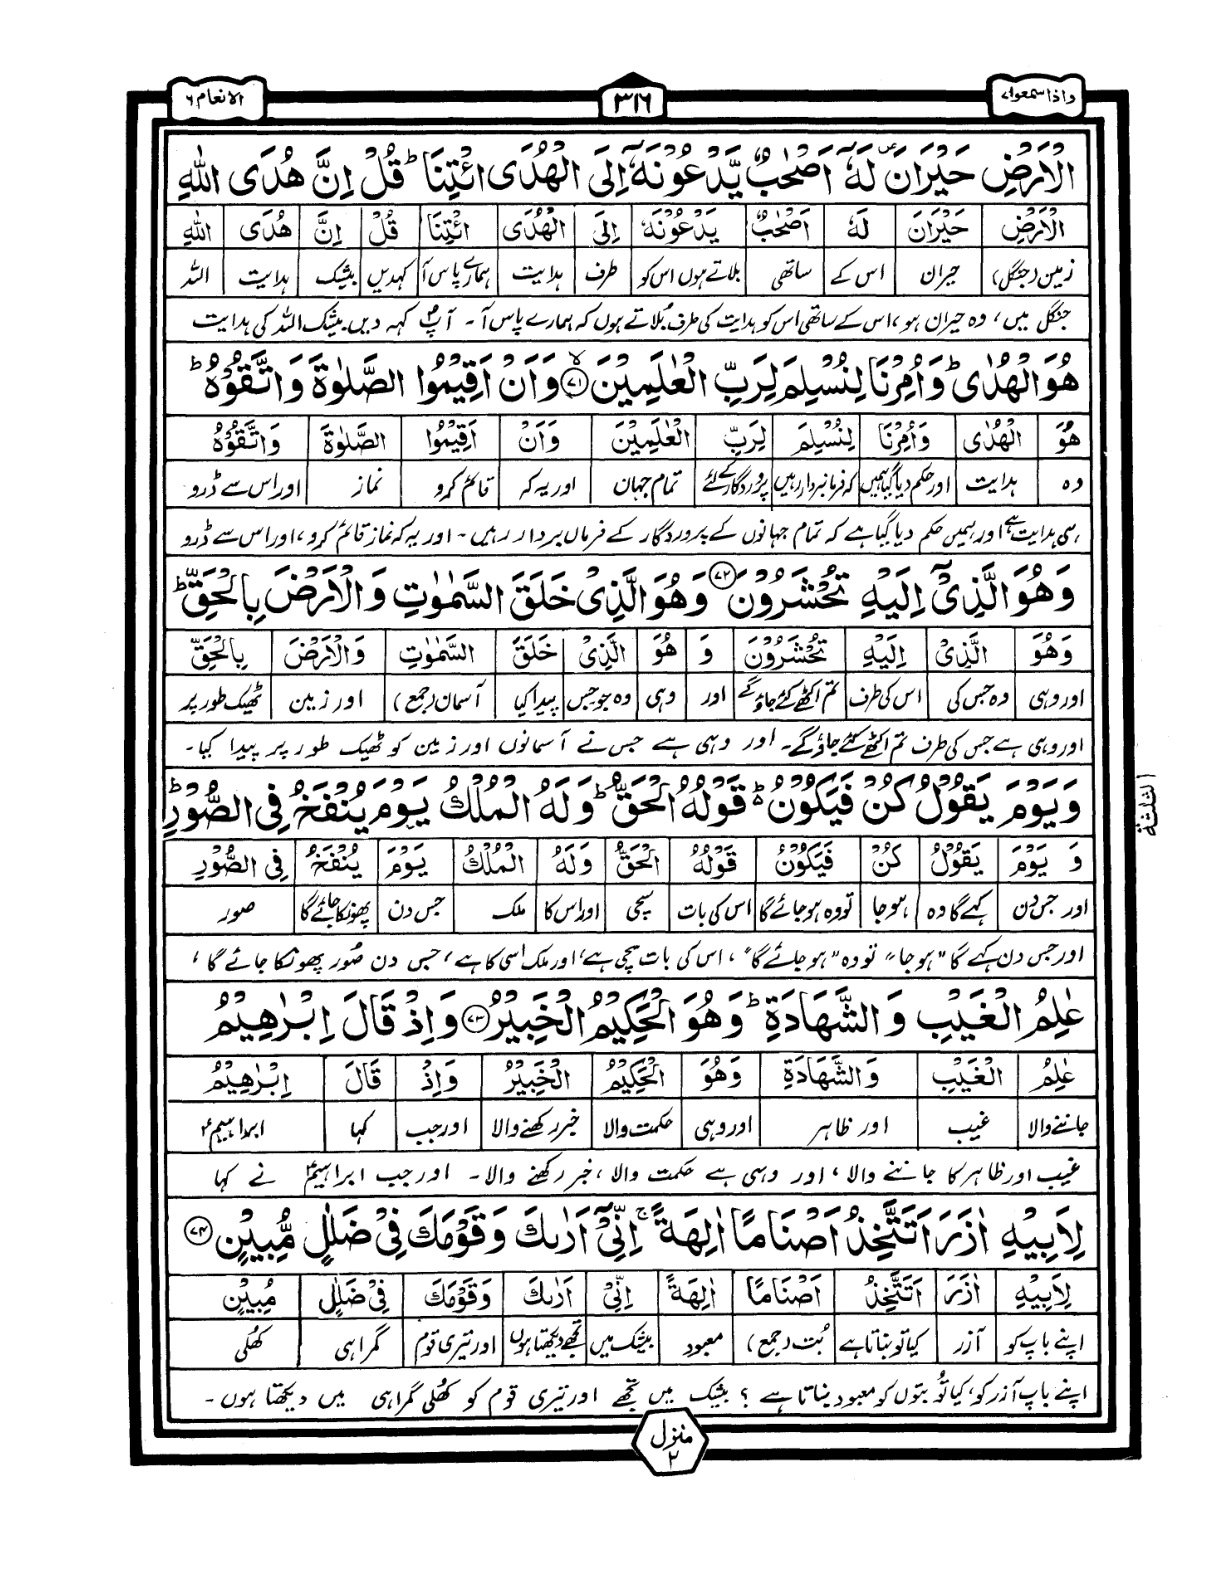 واذا سمعوا۷
۳۱۶
الانعام۶
الْاَرْضِ حَیْرَانَ ۪ لَهٗۤ اَصْحٰبٌ یَّدْعُوْنَهٗۤ اِلَی الْهُدَی ائْتِنَا ؕ قُلْ اِنَّ هُدَی اللّٰهِ
الْاَرْضِ حَیْرَانَ لَهٗ اَصْحٰبٌ یَدْعُوْنَهٗ اِلَی الْهُدَی ائْتِنَا قُلْ اِنَّ هُدَی اللّٰهِ
زمین (جنگل) حیران اس کے ساتھی بلاتے ہوں اس کو طرف ہدایت ہمارے پاس آ کہدیں بیشک ہدایت اللہ
جنگل میں، وہ حیران ہو، اس کے ساتھی اس کو ہدایت کی طرف بلاتے ہوں کہ ہمارے پاس آ۔ آپؐ کہہ دیں بیشک اللہ کی ہدایت
هُوَ الْهُدٰی ؕ وَاُمِرْنَا لِنُسْلِمَ لِرَبِّ الْعٰلَمِیْنَ ۙ۷۱ وَاَنْ اَقِیْمُوا الصَّلٰوةَ وَاتَّقُوْهُ ؕ
هُوَ الْهُدٰی وَاُمِرْنَا لِنُسْلِمَ لِرَبِّ الْعٰلَمِیْنَ وَاَنْ اَقِیْمُوا الصَّلٰوةَ وَاتَّقُوْهُ
وہ ہدایت اور حکم دیا گیا ہمیں کہ فرمانبردار رہیں پروردگار کے لئے تمام جہان اور یہ کہ قائم کرو نماز اور اس سے ڈرو
ہی ہدایت ہے اور ہمیں حکم دیا گیا ہے کہ تمام جہانوں کے پروردگار کے فرماں بردار رہیں۔ اور یہ کہ نماز قائم کرو، اور اس سے ڈرو
وَهُوَ الَّذِیْۤ اِلَیْهِ تُحْشَرُوْنَ ۷۲ وَهُوَ الَّذِیْ خَلَقَ السَّمٰوٰتِ وَالْاَرْضَ بِالْحَقِّ ؕ
وَهُوَ الَّذِیْ اِلَیْهِ تُحْشَرُوْنَ وَ هُوَ الَّذِیْ خَلَقَ السَّمٰوٰتِ وَالْاَرْضَ بِالْحَقِّ
اور وہی وہ جس کی اس کی طرف تم اکٹھے کئے جاؤ گے اور وہی وہ جو جس پیدا کیا آسمان (جمع) اور زمین ٹھیک طور پر
اور وہی ہے جس کی طرف تم اکٹھے کئے جاؤ گے۔ اور وہی ہے جس نے آسمانوں اور زمین کو ٹھیک طور پر پیدا کیا۔
وَیَوْمَ یَقُوْلُ كُنْ فَیَكُوْنُ ؕ۬ قَوْلُهُ الْحَقُّ ؕ وَلَهُ الْمُلْكُ یَوْمَ یُنْفَخُ فِی الصُّوْرِ ؕ
وَ یَوْمَ یَقُوْلُ كُنْ فَیَكُوْنُ قَوْلُهُ الْحَقُّ وَلَهُ الْمُلْكُ یَوْمَ یُنْفَخُ فِی الصُّوْرِ
اور جس دن کہے گا وہ ہو جا تو وہ ہو جائے گا اس کی بات سچی اور اس کا ملک جس دن پھونکا جائے گا صور
اور جس دن کہے گا "ہو جا" تو وہ "ہو جائے گا"، اس کی بات سچی ہے، اور ملک اسی کا ہے، جس دن صُور پھونکا جائے گا،
الثلثة
عٰلِمُ الْغَیْبِ وَالشَّهَادَةِ ؕ وَهُوَ الْحَكِیْمُ الْخَبِیْرُ ۷۳ وَاِذْ قَالَ اِبْرٰهِیْمُ
عٰلِمُ الْغَیْبِ وَالشَّهَادَةِ وَهُوَ الْحَكِیْمُ الْخَبِیْرُ وَاِذْ قَالَ اِبْرٰهِیْمُ
جاننے والا غیب اور ظاہر اور وہی حکمت والا خبر رکھنے والا اور جب کہا ابراہیمؑ
غیب اور ظاہر کا جاننے والا، اور وہی ہے حکمت والا، خبر رکھنے والا۔ اور جب ابراہیمؑ نے کہا
لِاَبِیْهِ اٰزَرَ اَتَتَّخِذُ اَصْنَامًا اٰلِهَةً ۚ اِنِّیْۤ اَرٰىكَ وَقَوْمَكَ فِیْ ضَلٰلٍ مُّبِیْنٍ ۷۴
لِاَبِیْهِ اٰزَرَ اَتَتَّخِذُ اَصْنَامًا اٰلِهَةً اِنِّیْۤ اَرٰىكَ وَقَوْمَكَ فِیْ ضَلٰلٍ مُبِیْنٍ
اپنے باپ کو آزر کیا تو بناتا ہے بُت (جمع) معبود بیشک میں تجھے دیکھتا ہوں اور تیری قوم گمراہی کھُلی
اپنے باپ آزر کو، کیا تُو بتوں کو معبود بناتا ہے؟ بیشک میں تجھے اور تیری قوم کو کھُلی گمراہی میں دیکھتا ہوں۔
منزل
۲